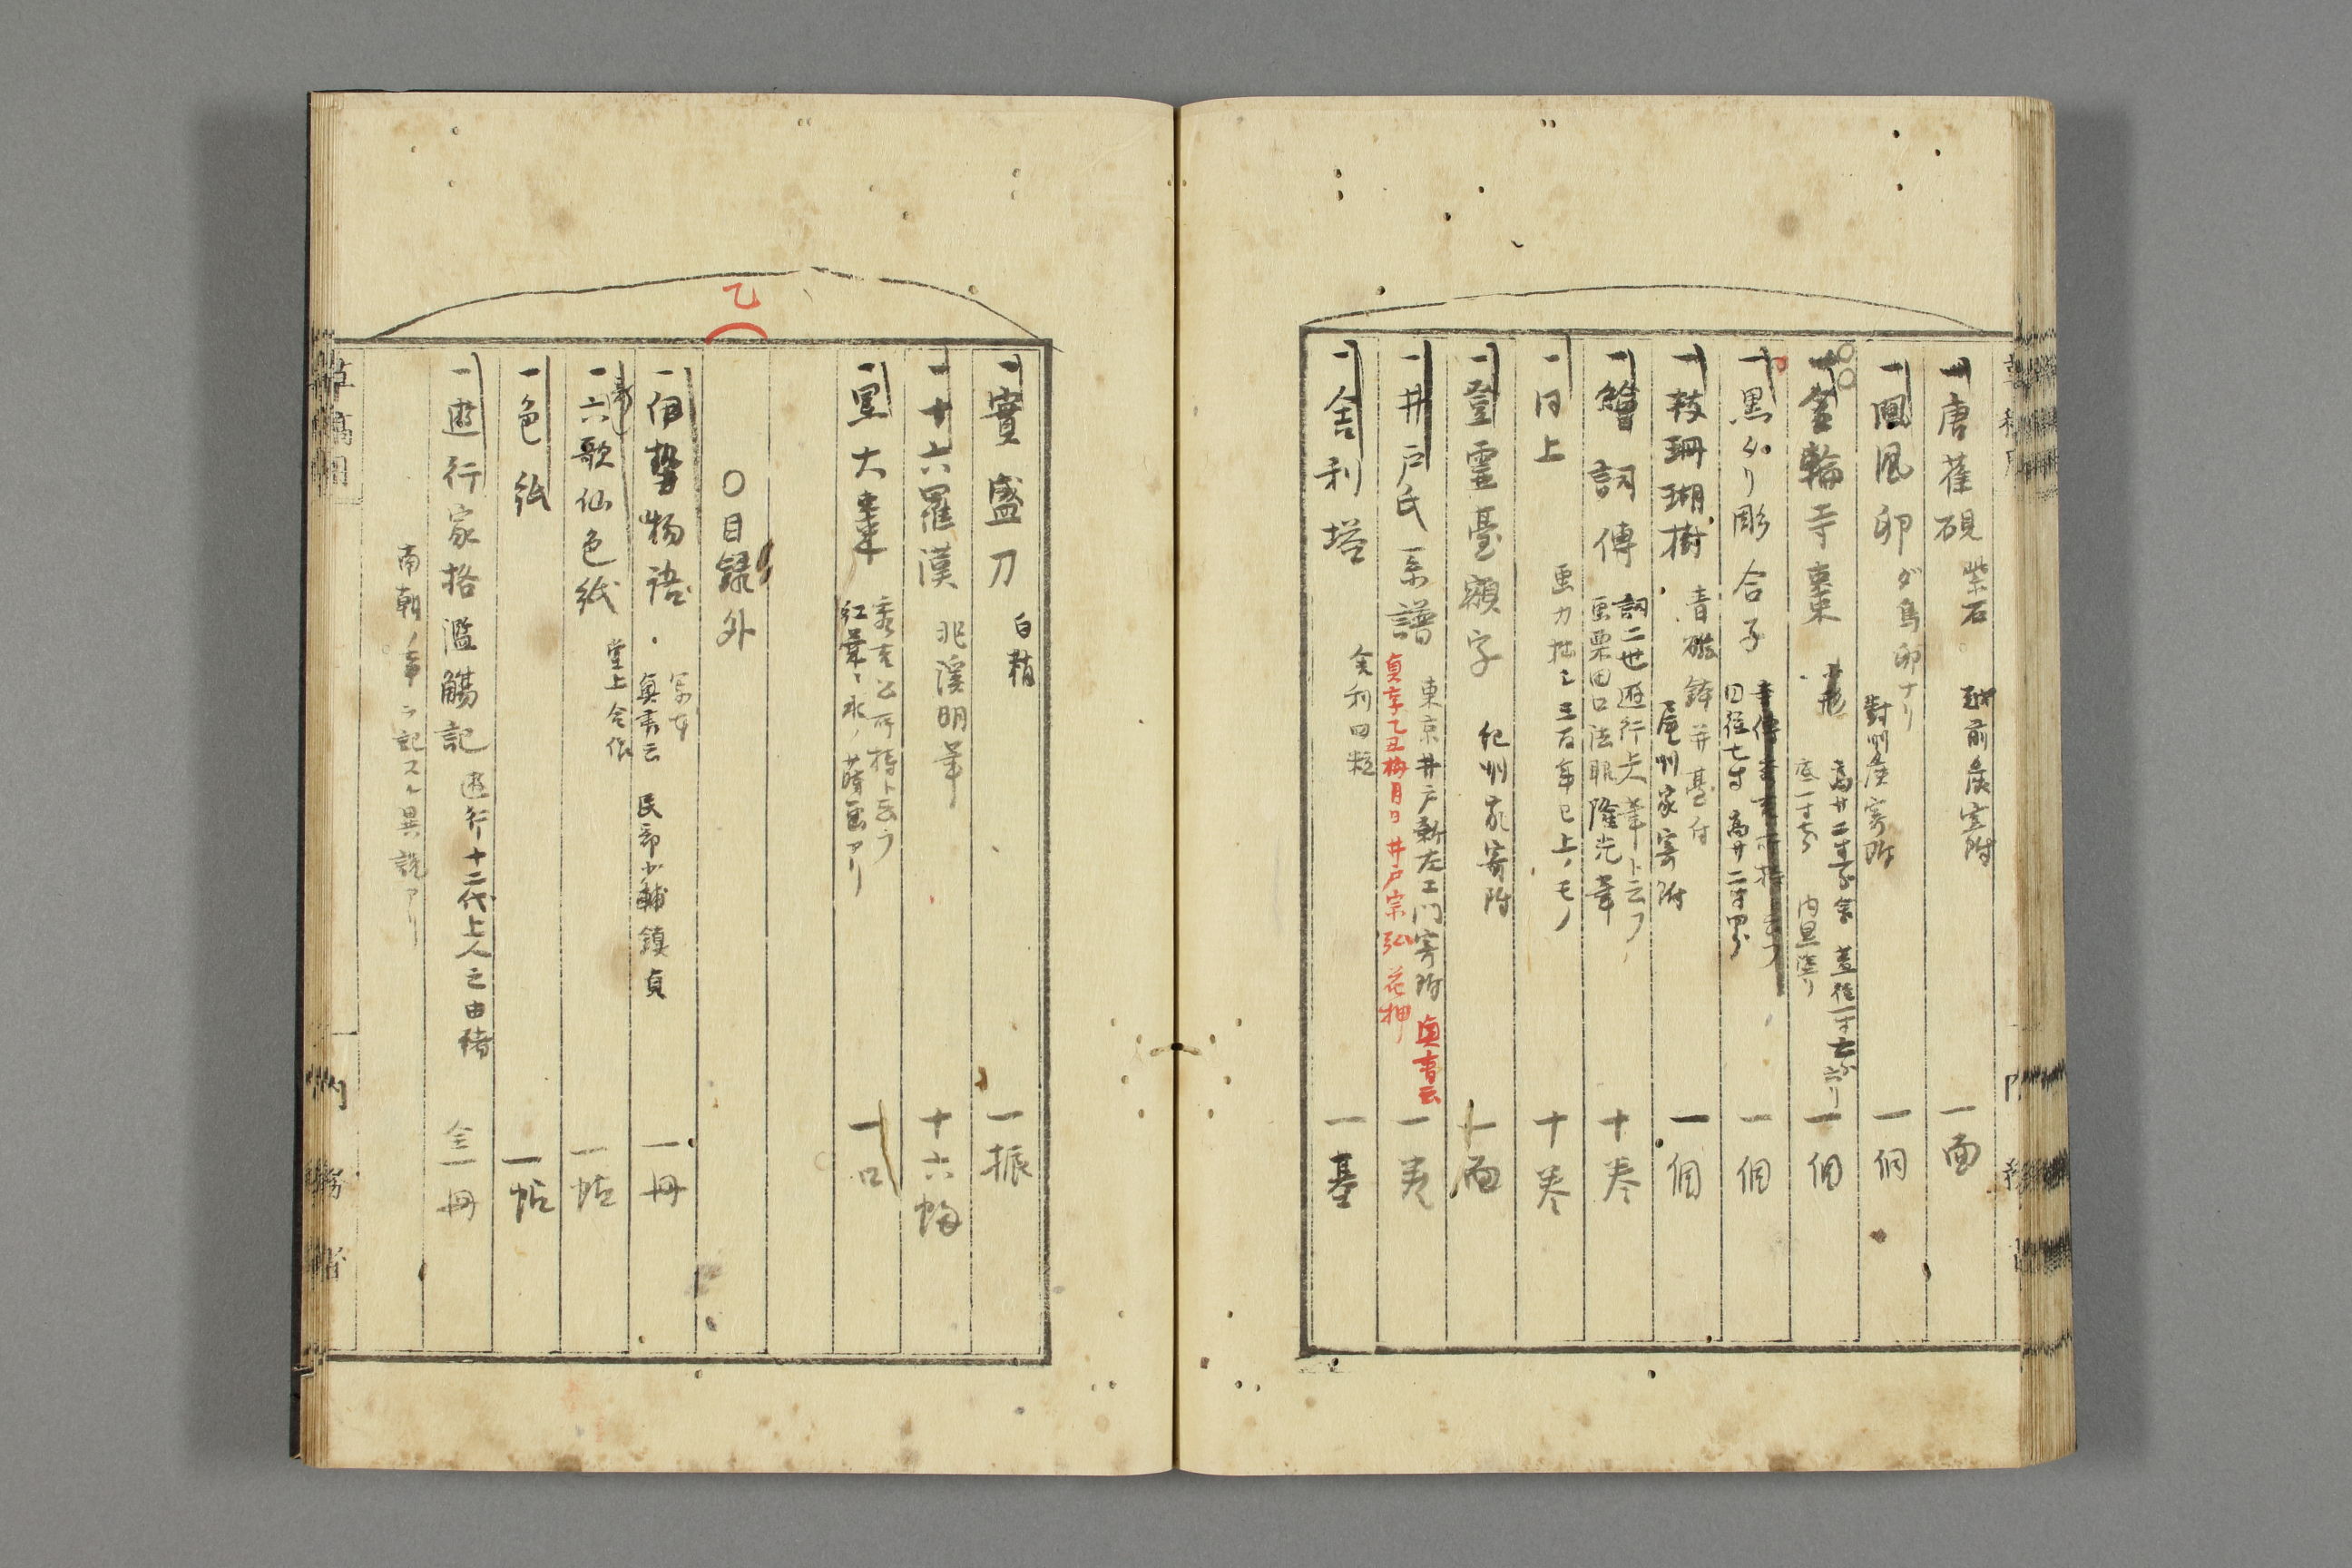 一唐䕮硯 紫石 越前侯寄附 一面
一鳳凰卵 ダ鳥卵ナリ 對州侯寄附 一個
一金輪寺棗 小形 高サ二寸 蓋径一寸 底一寸 内黒塗リ 一個
一黒タリ彫合子 回径七寸 高サ二寸四分 一個
一枝珊瑚樹 青磁鉢并臺付 尾州家寄附 一個
一繪詞傳 詞二世遊行上人筆ト云フ 画粟田口法眼隆光筆 十巻
一同上 画力拙シ三百年已上ノモノ 十巻
一登霊臺額字 紀州家寄附 一面
一井戸氏系譜 東京井戸新左エ門寄附 奥書云 貞享乙丑梅月日 井戸宗弘 花押 一巻
一舎利塔 舎利四粒 一基
一實盛刀 白鞘 一振
一十六羅漢 兆渓明筆 十六幅
一星大棗 秀吉公所持ト云フ 紅葉ニ水ノ蒔画アリ 一口
乙
○目録外
一伊勢物語 写本 奥書云 民部少輔鎮貞 一冊
一六歌仙色紙 堂上合作 一帖
一色紙 一帖
一遊行家格濫觴記 遊行十二代上人之由緒 全一冊
南朝ノ事ヲ記スル異説アリ
草稿用
内務省